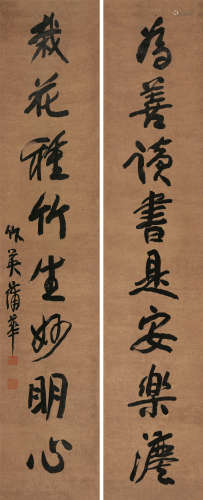 為善讀書是安樂瀍
栽花種竹生妙明心
作英蒲華